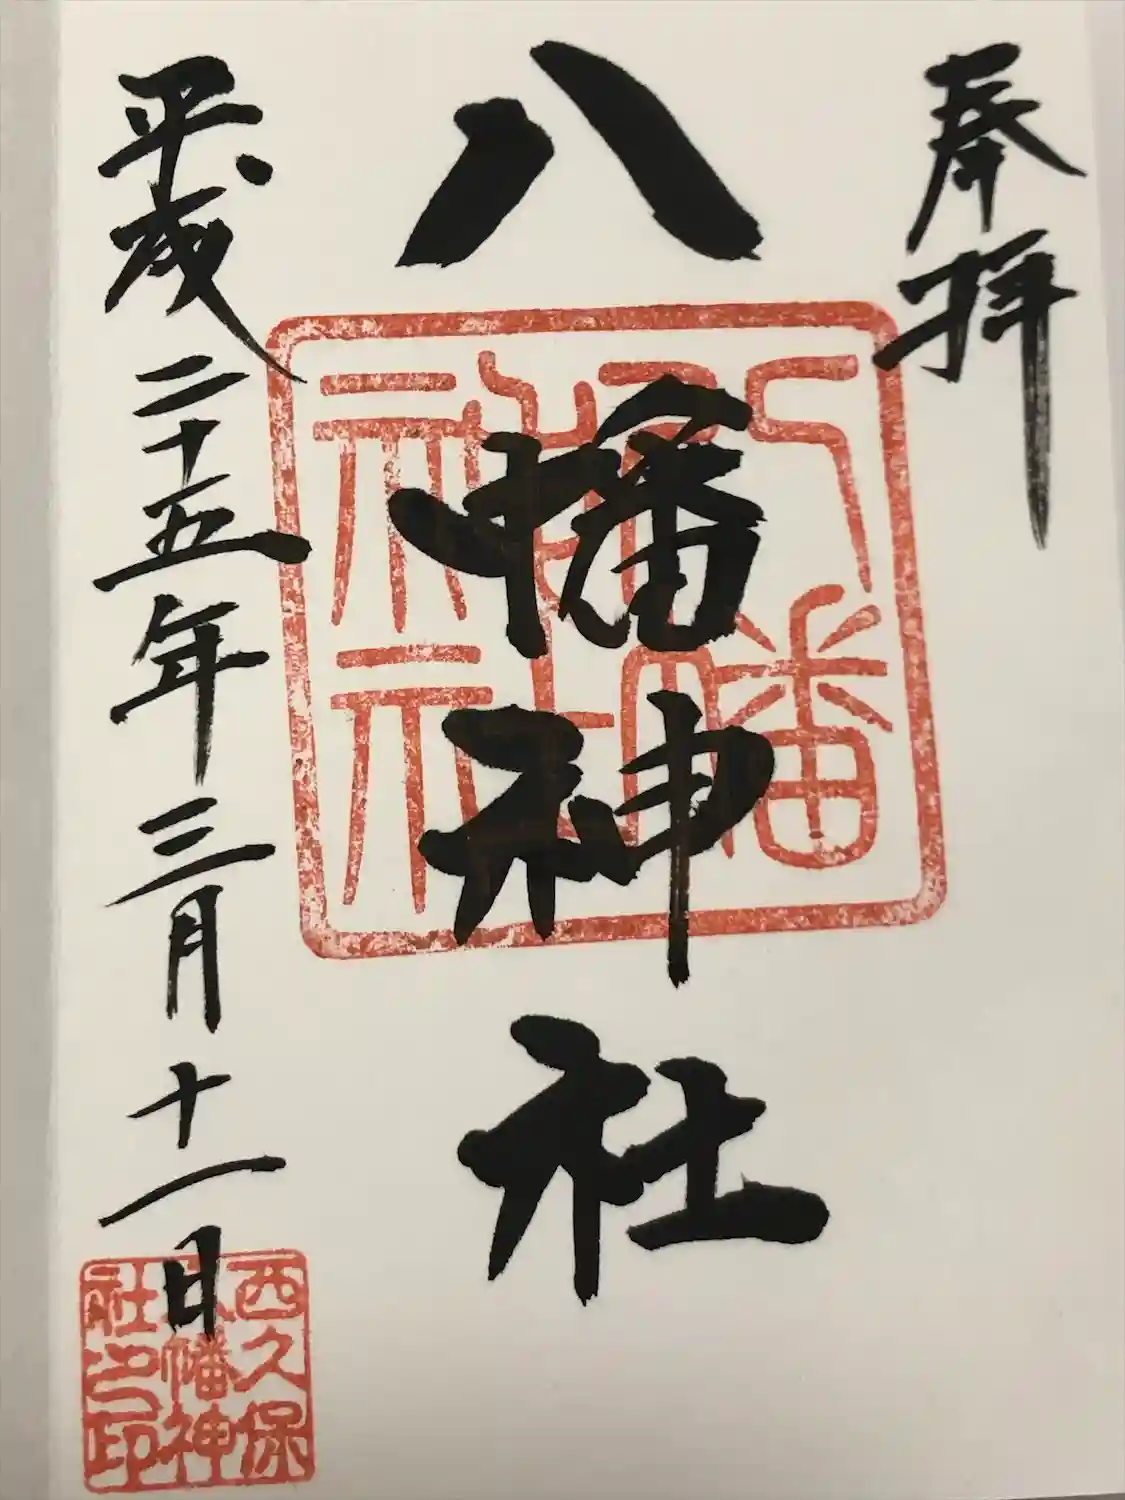 奉拝
八幡神社
八幡神社
平成二十五年三月十一日
西久保八幡神社之印